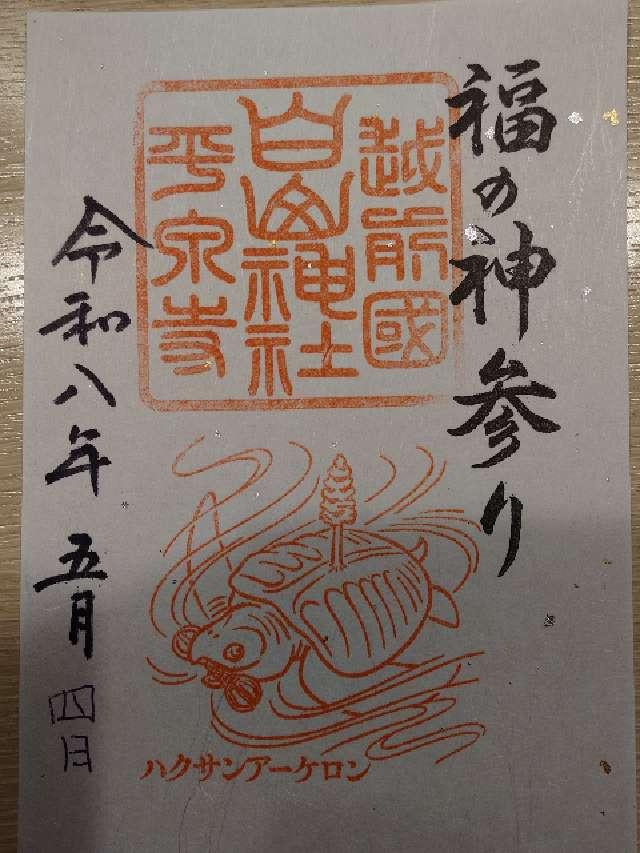 福の神参り
越前國
白山神社
平泉寺
令和八年 五月四日
ハクサンアーケロン